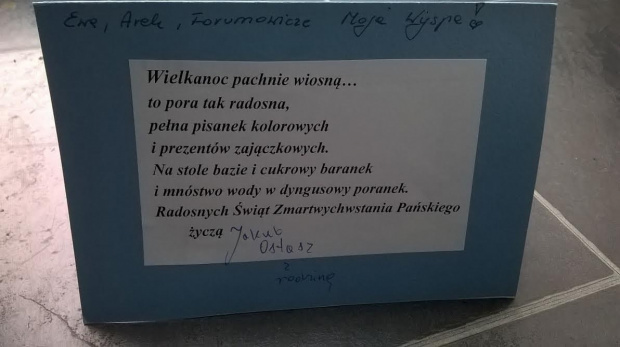 Ewa, Arek, Forumowicze Moja Wyspa!
Wielkanoc pachnie wiosną...
to pora tak radosna,
pełna pisanek kolorowych
i prezentów zajączkowych.
Na stole bazie i cukrowy baranek
i mnóstwo wody w dyngusowy poranek.
Radosnych Świąt Zmartwychwstania Pańskiego
życzą Jakub
z
rodziną